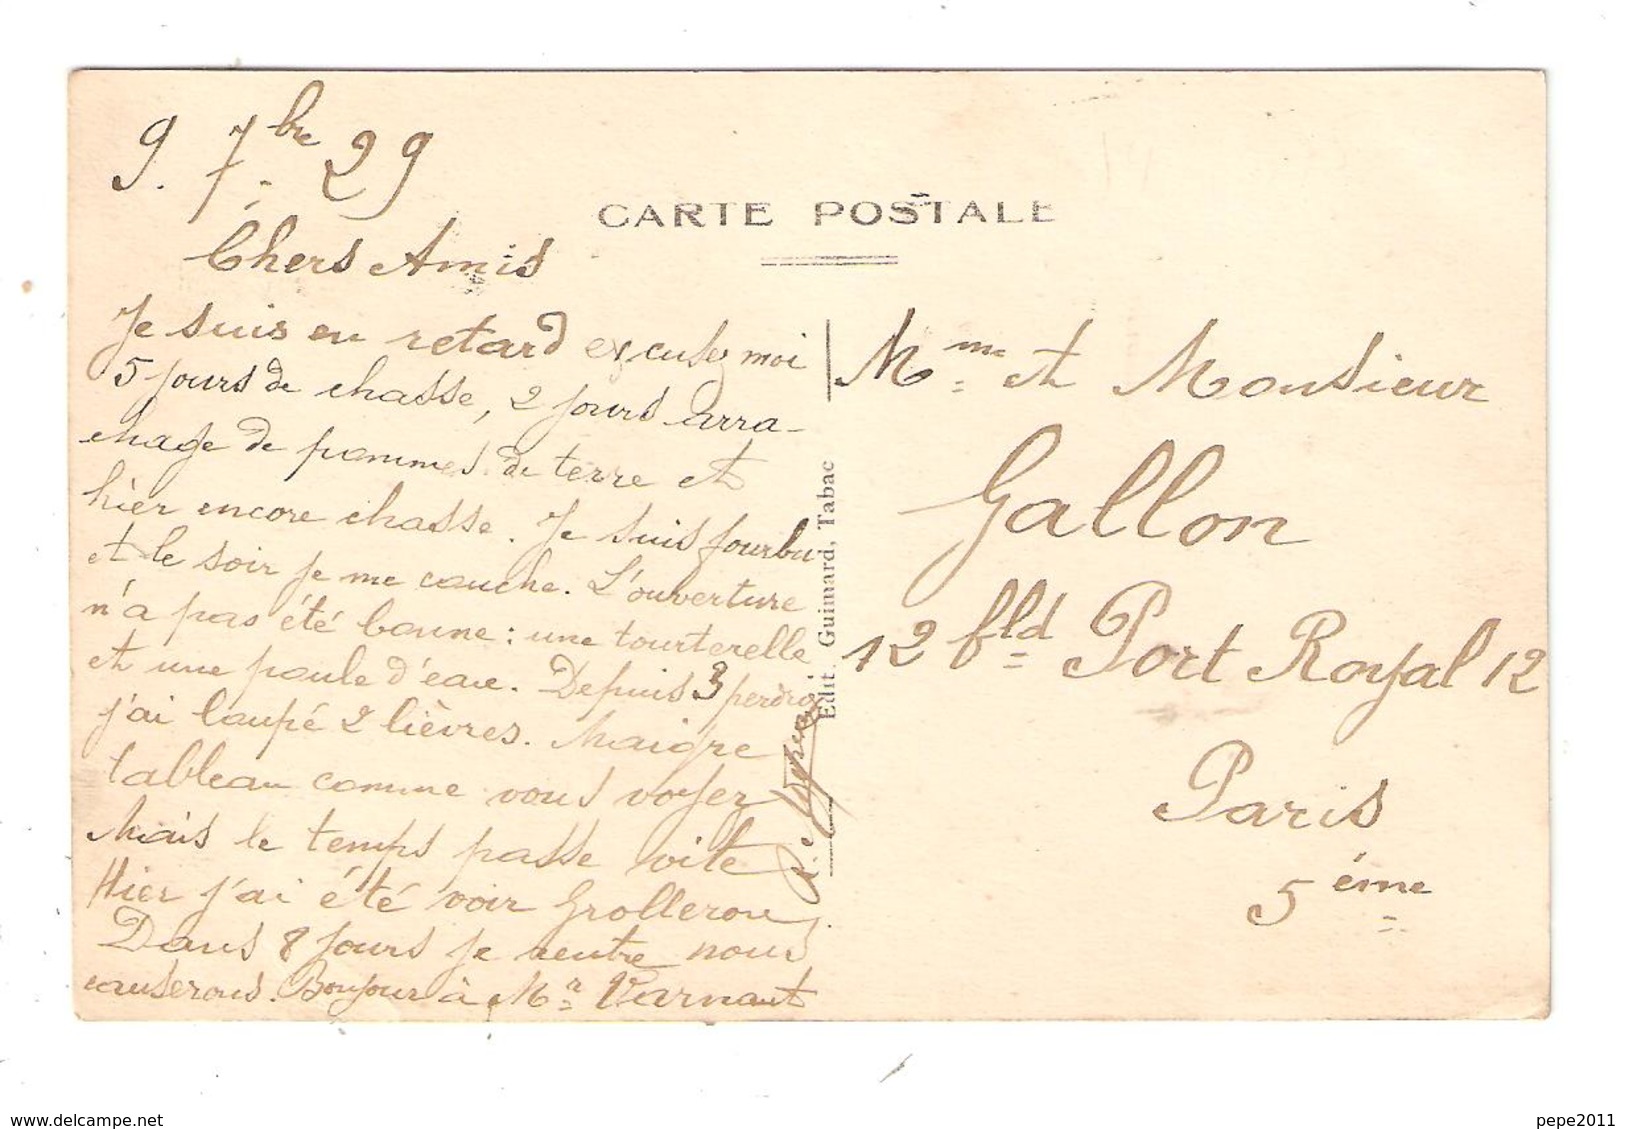 9. 7bre 29
CARTE POSTALE
Chers Amis
Je suis en retard excusez moi
5 jours de chasse, 2 jours arra-
chage de pommes de terre et
hier encore chasse. Je suis fourbu
et le soir je me couche. L'ouverture
n'a pas été bonne : une tourterelle
et une poule d'eau. Depuis 3 perdrix
j'ai loupé 2 lièvres. Maigre
tableau comme vous voyez
Mais le temps passe vite
Hier j'ai été voir Grolleron
Dans 8 jours je rentre nous
causerons. Bonjour à Mr
Edit. Guimard, Tabac
Mme et Monsieur
Gallon
12 bld Port Royal 12
Paris
5ème
www.delcampe.net
pepe2011